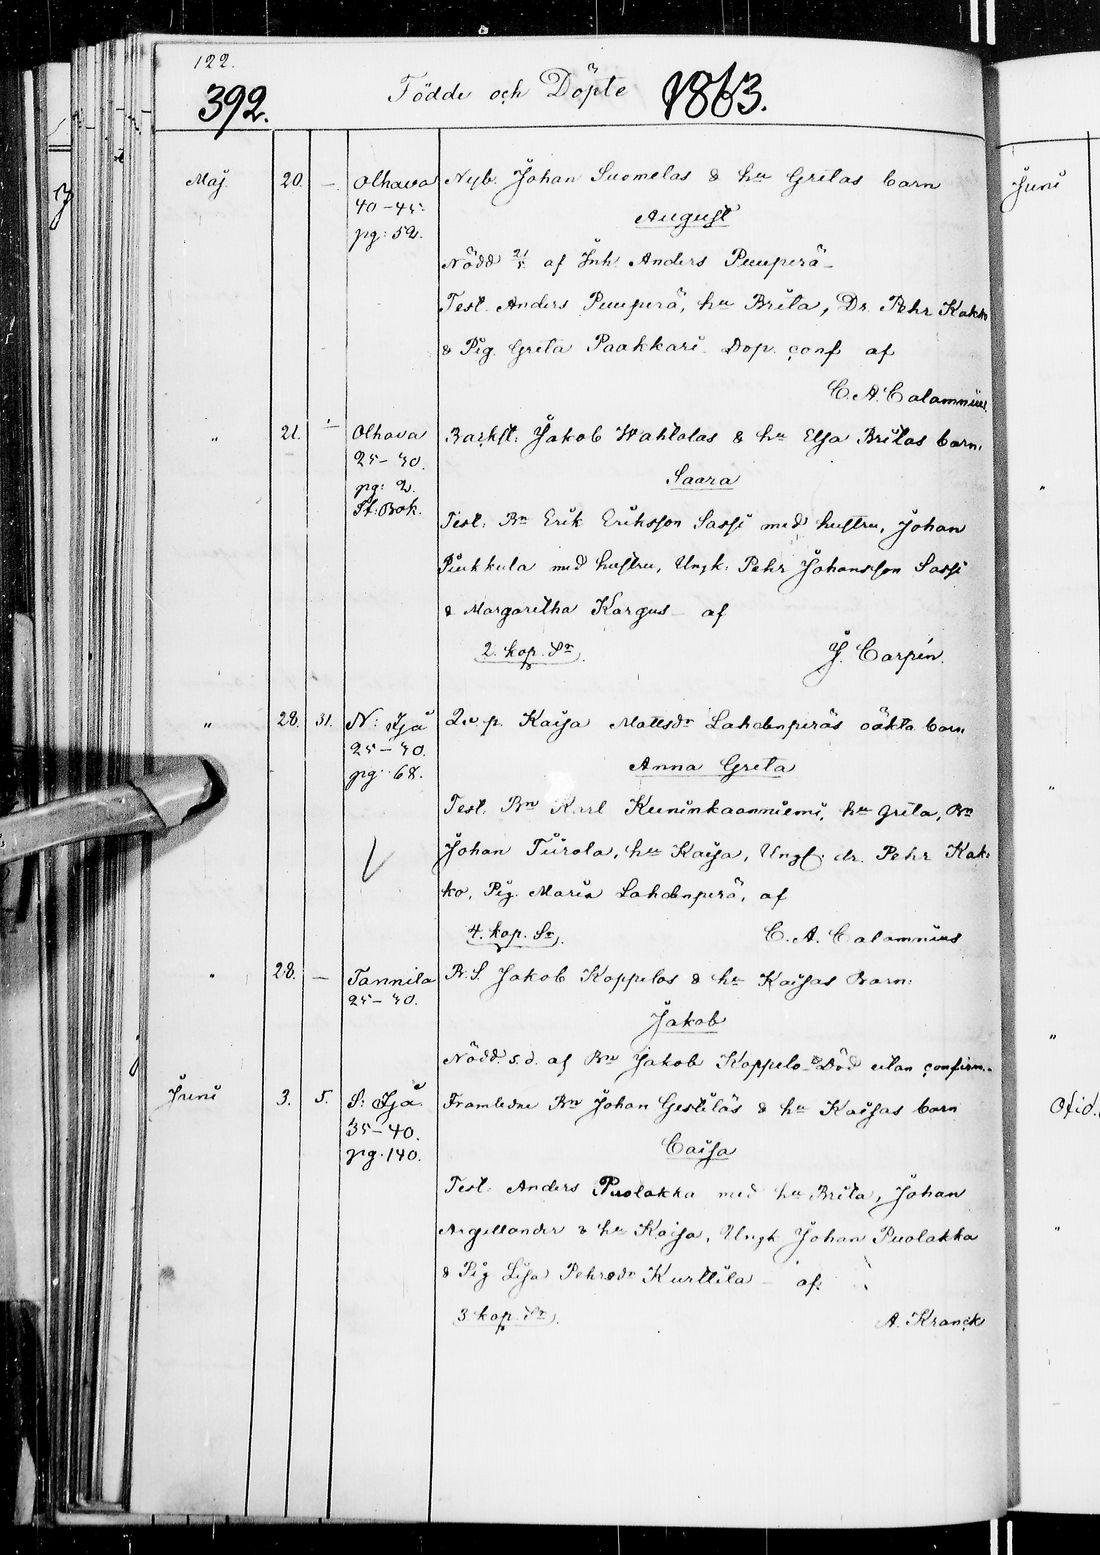 122.
392. Födde och Döpte 1863.
Maj. 20. – Olhava Nyb. Johan Suomelas & hu Gretas barn
40–45. August
pg: 52.
Nödd 21/5 af Inh. Anders Puuperä –
Test. Anders Puuperä, hu Brita, Dr. Pehr Kakko
& Pig. Greta Paakkari. Dop. conf af
C. A. Calamnius.
" 21. – Olhava Backst. Jakob Wahtolas & hu Elsa Britas barn.
25–30. Saara
pg: 2.
St. Bok.
Test: Bn Erik Eriksson Sassi med hustru, Johan
Piukkula med hustru, Ungk: Pehr Johansson Sassi
& Margaretha Kargus – af
2. kop. Sr. J. Carpén.
" 28. 31. N: Ijå Qv. p. Kaisa Mattsdr Lahdenperäs oäkta barn
25–30. Anna Greta
pg. 68.
Test. Bn Karl Kuninkaanniemi, hu Greta, Bn
Johan Tiirola, hu Kaisa, Ungk. dr. Pehr Kak-
ko, Pig. Maria Lahdenperä, af
4. kop. Sr. C. A. Calamnius
" 28. – Tannila B. S. Jakob Koppelos & hu Kaisas Barn:
25–30. Jakob
Nödd. s. d. af Bn Jakob Koppelo – Död utan confirm.
Juni 3. 5. S: Ijå Framledne Bn Johan Gestiläs & hu Kaisas barn
35–40. Caisa
pg. 140.
Test. Anders Puolakka med hu Brita, Johan
Argillander & hu Kaisa, Ungk Johan Puolakka
& Pig Lisa Pehrsdr Kurttila – af.
3 kop. Sr. A. Kranck
Juni
"
"
"
"